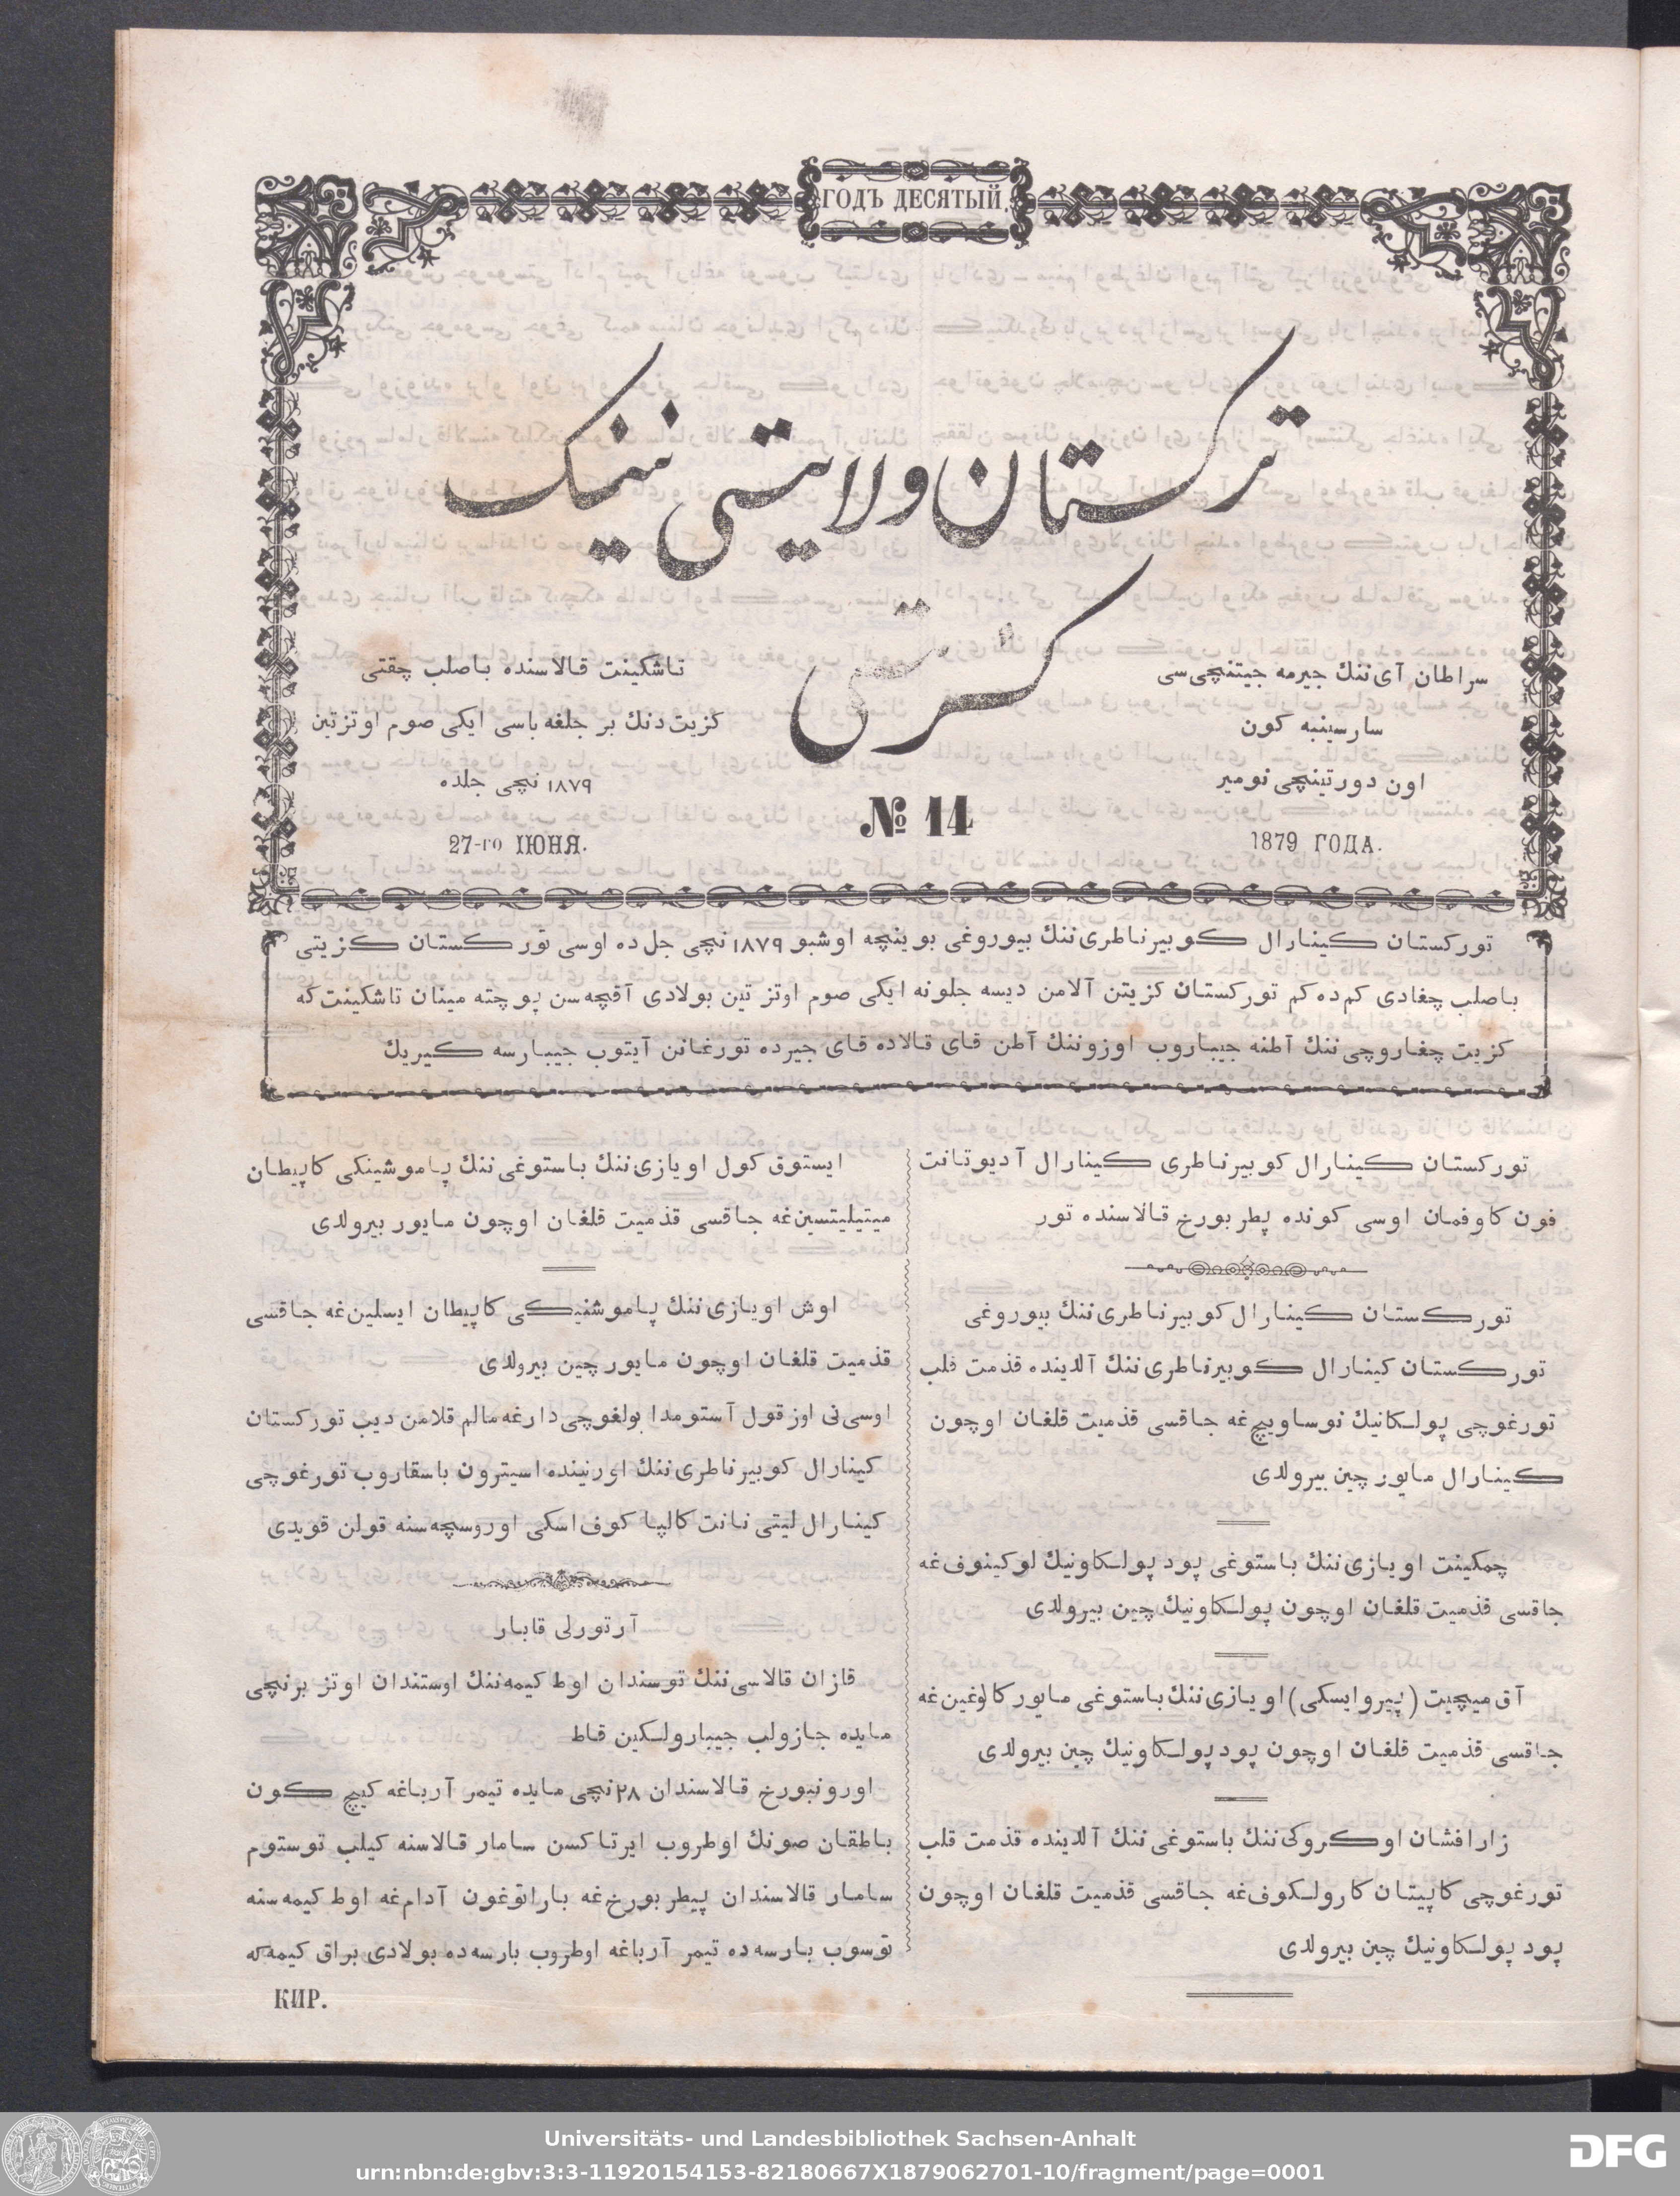 ГОДЪ ДЕСЯТЫЙ.
ترکستان ولایتی نینک
گزتی
سراطان آی‌ننك جیرمه جیتنچی‌سی
سارسینبه کون
اون دورتینچی نومیر
1879 ГОДА.
№ 14
تاشکینت قالاسنده باصلب چقتی
کزیت‌دنك بر جلغه باسی ایکی صوم اوتزتین
۱۸۷۹ نچی جلده
27-го ІЮНЯ.
تورکستان کینارال کوبیرناطری‌ننك بیوروغی بوینچه اوشبو ۱۸۷۹ نچی جل‌ده اوسی تورکستان کزیتی
باصلب چغادی کم‌ده‌کم تورکستان کزیتن آلامن دیسه جلونه ایکی صوم اوتز تین بولادی آقچه‌سن پوچته مینان تاشکینت‌که
کزیت چغاروچی‌ننك آطنه جیباروب اوزوننك آطن قای قالاده قای جیرده تورغانن آیتوب جیبارسه کیریك
تورکستان کینارال کوبیرناطری کینارال آدیوتانت
فون کاوفمان اوسی کونده پطربورخ قالاسنده تور
تورکستان کینارال کوبیرناطری‌ننك بیوروغی
تورکستان کینارال کوبیرناطری‌ننك آلدینده قذمت قلب
تورغوچی پولکانیك نوساویچ‌غه جاقسی قذمیت قلغان اوچون
کینارال مایور چین بیرولدی
چمکینت اویازی‌ننك باستوغی پود پولکاونیك لوکینوف‌غه
جاقسی قذمیت قلغان اوچون پولکاونیك چین بیرولدی
آق میچیت (پیروایسکی) اویازی‌ننك باستوغی مایور کالوغین‌غه
جاقسی قذمیت قلغان اوچون پود پولکاونیك چین بیرولدی
زارافشان اوکروکی‌ننك باستوغی‌ننك آلدینده قذمت قلب
تورغوچی کاپیتان کارولکوف‌غه جاقسی قذمیت قلغان اوچون
پود پولکاونیك چین بیرولدی
ایستوق کول اویازی‌ننك باستوغی‌ننك پاموشینکی کاپیطان
میتیلیتسین‌غه جاقسی قذمیت قلغان اوچون مایور بیرولدی
اوش اویازی‌ننك پاموشنیکی کاپیطان ایسلین‌غه جاقسی
قذمیت قلغان اوچون مایور چین بیرولدی
اوسی‌نی اوز قول آستومدا بولغوچی‌دارغه مالم قلامن دیب تورکستان
کینارال کوبیرناطری‌ننك اورنینده اسیترون باسقاروب تورغوچی
کینارال لیتی نانت کالپا کوف اسکی اوروسچه‌سنه قولن قویدی
آرتورلی قابار
قازان قالاسی‌ننك توسندان اوط کیمه‌ننك اوستندان اوتز برنچی
مایده جازولب جیبارولکین قاط
اورونبورخ قالاسندان ۲۸ نچی مایده تیمر آرباغه کیچ کون
باطقان صونك اوطروب ایرتاکسن سامار قالاسنه کیلب توستوم
سامار قالاسندان پیطربورخ‌غه باراتوغون آدام‌غه اوط کیمه‌سنه
توسوب بارسه‌ده تیمر آرباغه اوطروب بارسه‌ده بولادی براق کیمه‌که
КИР.
Universitäts- und Landesbibliothek Sachsen-Anhalt
urn:nbn:de:gbv:3:3-11920154153-82180667X1879062701-10/fragment/page=0001
DFG